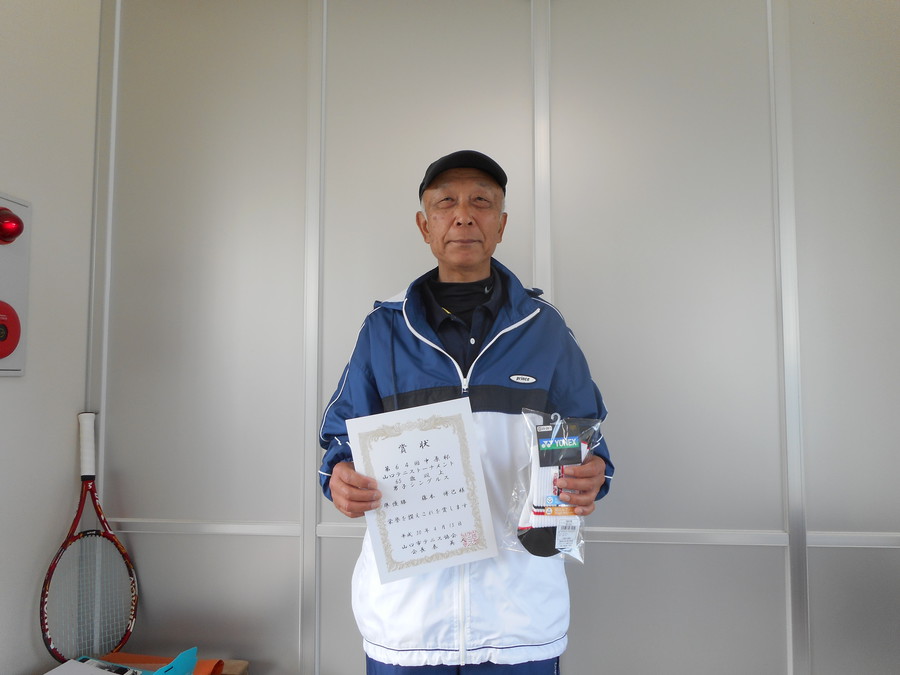 賞状
第64回中原杯
山口テニストーナメント
65歳以上
男子シングルス
準優勝 藤本 博己様
栄誉を讃えこれを賞します
山口市テニス協会
prince
YONEX